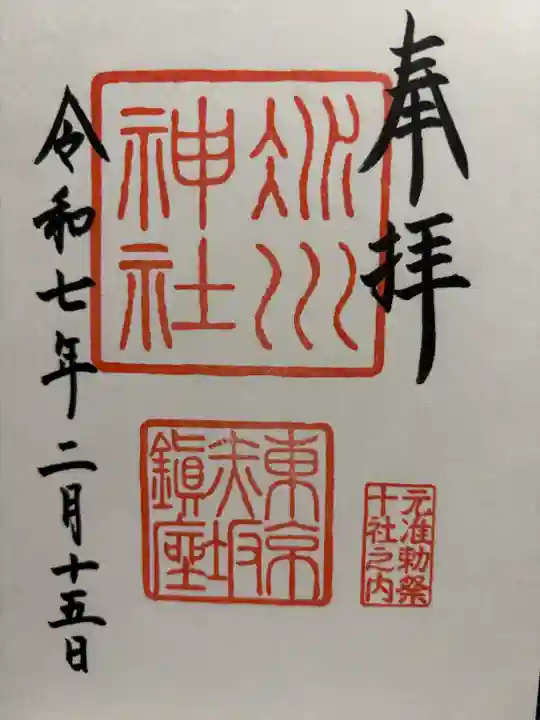 奉拝
氷川
神社
東京
赤坂
鎮座
元准勅祭
十社之内
令和七年二月十五日